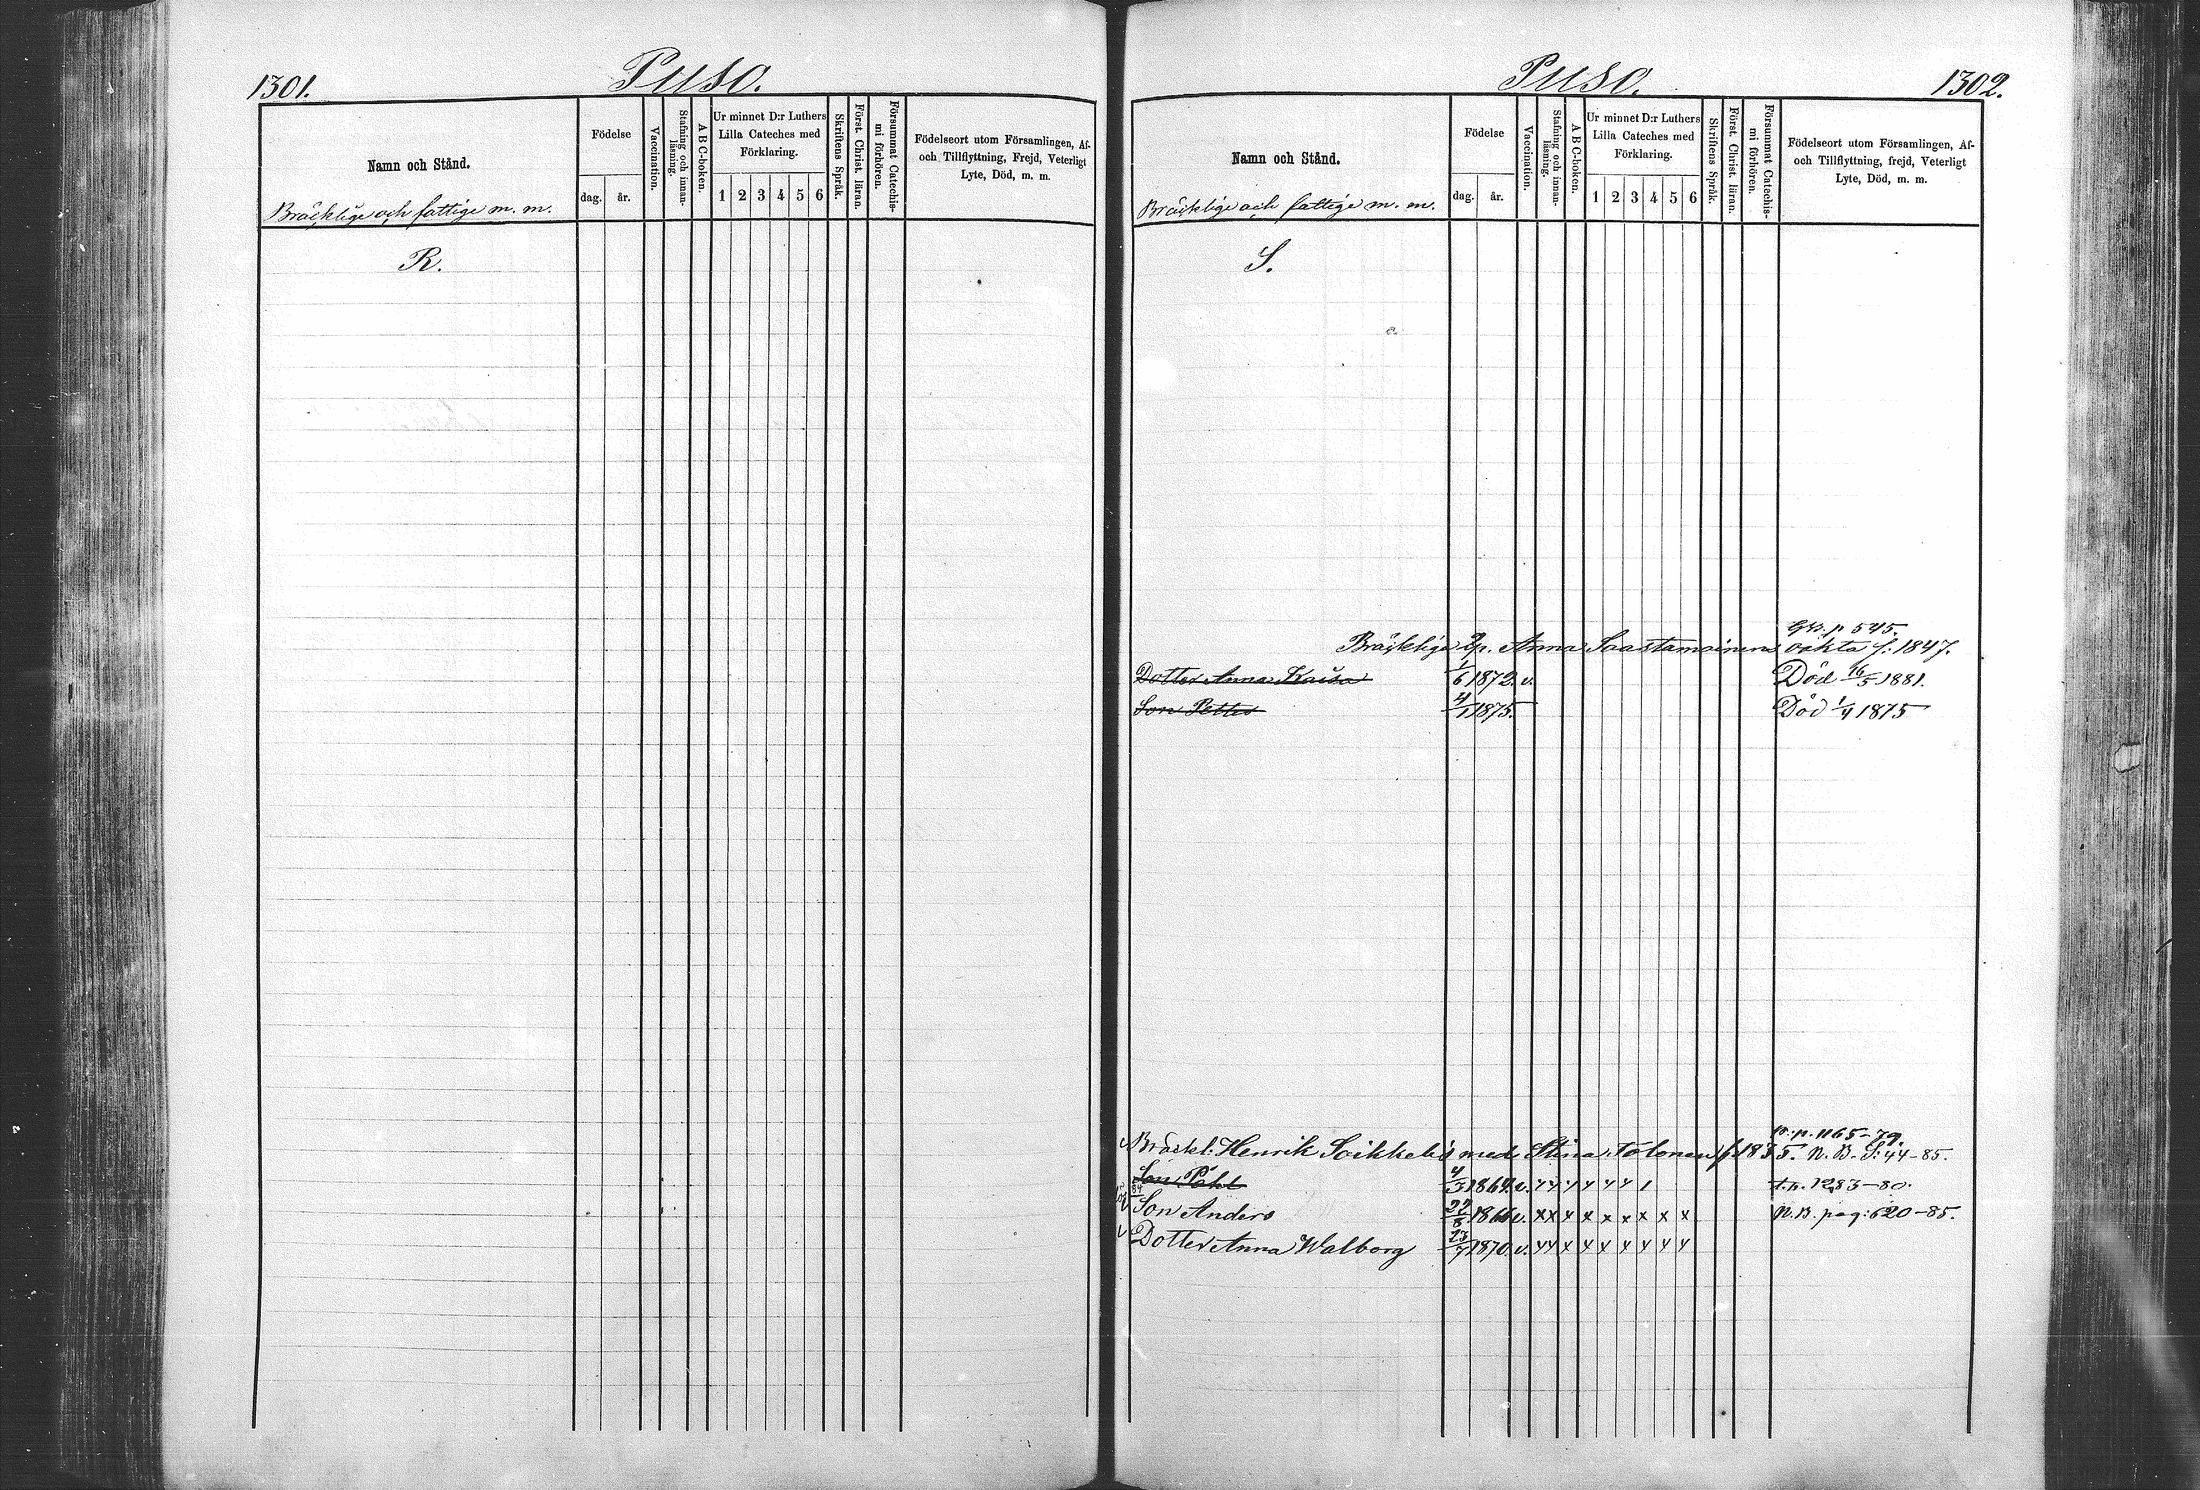 1301.
Puso.
Namn och Stånd.
Bräcklige och fattige m. m.
Födelse
dag.
år.
Vaccination.
Stafning och innan-
läsning.
A B C-boken.
Ur minnet D:r Luthers
Lilla Cateches med
Förklaring.
1 2 3 4 5 6
Skriftens Språk.
Först. Christ. läran.
Försummat Catechis-
mi förhören.
Födelseort utom Församlingen, Af-
och Tillflyttning, Frejd, Veterligt
Lyte, Död, m. m.
R.
Puso.
1302.
Namn och Stånd.
Bräcklige och fattige m. m.
Födelse
dag.
år.
Vaccination.
Stafning och innan-
läsning.
A B C-boken.
Ur minnet D:r Luthers
Lilla Cateches med
Förklaring.
1 2 3 4 5 6
Skriftens Språk.
Först. Christ. läran.
Försummat Catechis-
mi förhören.
Födelseort utom Församlingen, Af-
och Tillflyttning, frejd, Veterligt
Lyte, Död, m. m.
S.
p 545.
Bräcklige Anna Saastamoinens oäkta f. 1847.
Dotter Anna Kaisa 1/6 1872. v. Död 16/5 1881.
Son Petter 4/1 1875. Död 1/4 1875
p. 1165-79.
Bräckl. Henrik Soikkelis med Stina Tolonen f. 1835. N. B. S: 44-85.
Son Påhl 4/3 1864. v. t.p. 1283-80.
Son Anders 22/8 1866 v. x x x x x x x x x N.B. pag: 620-85.
Dotter Anna Walborg 23/7 1870. v.